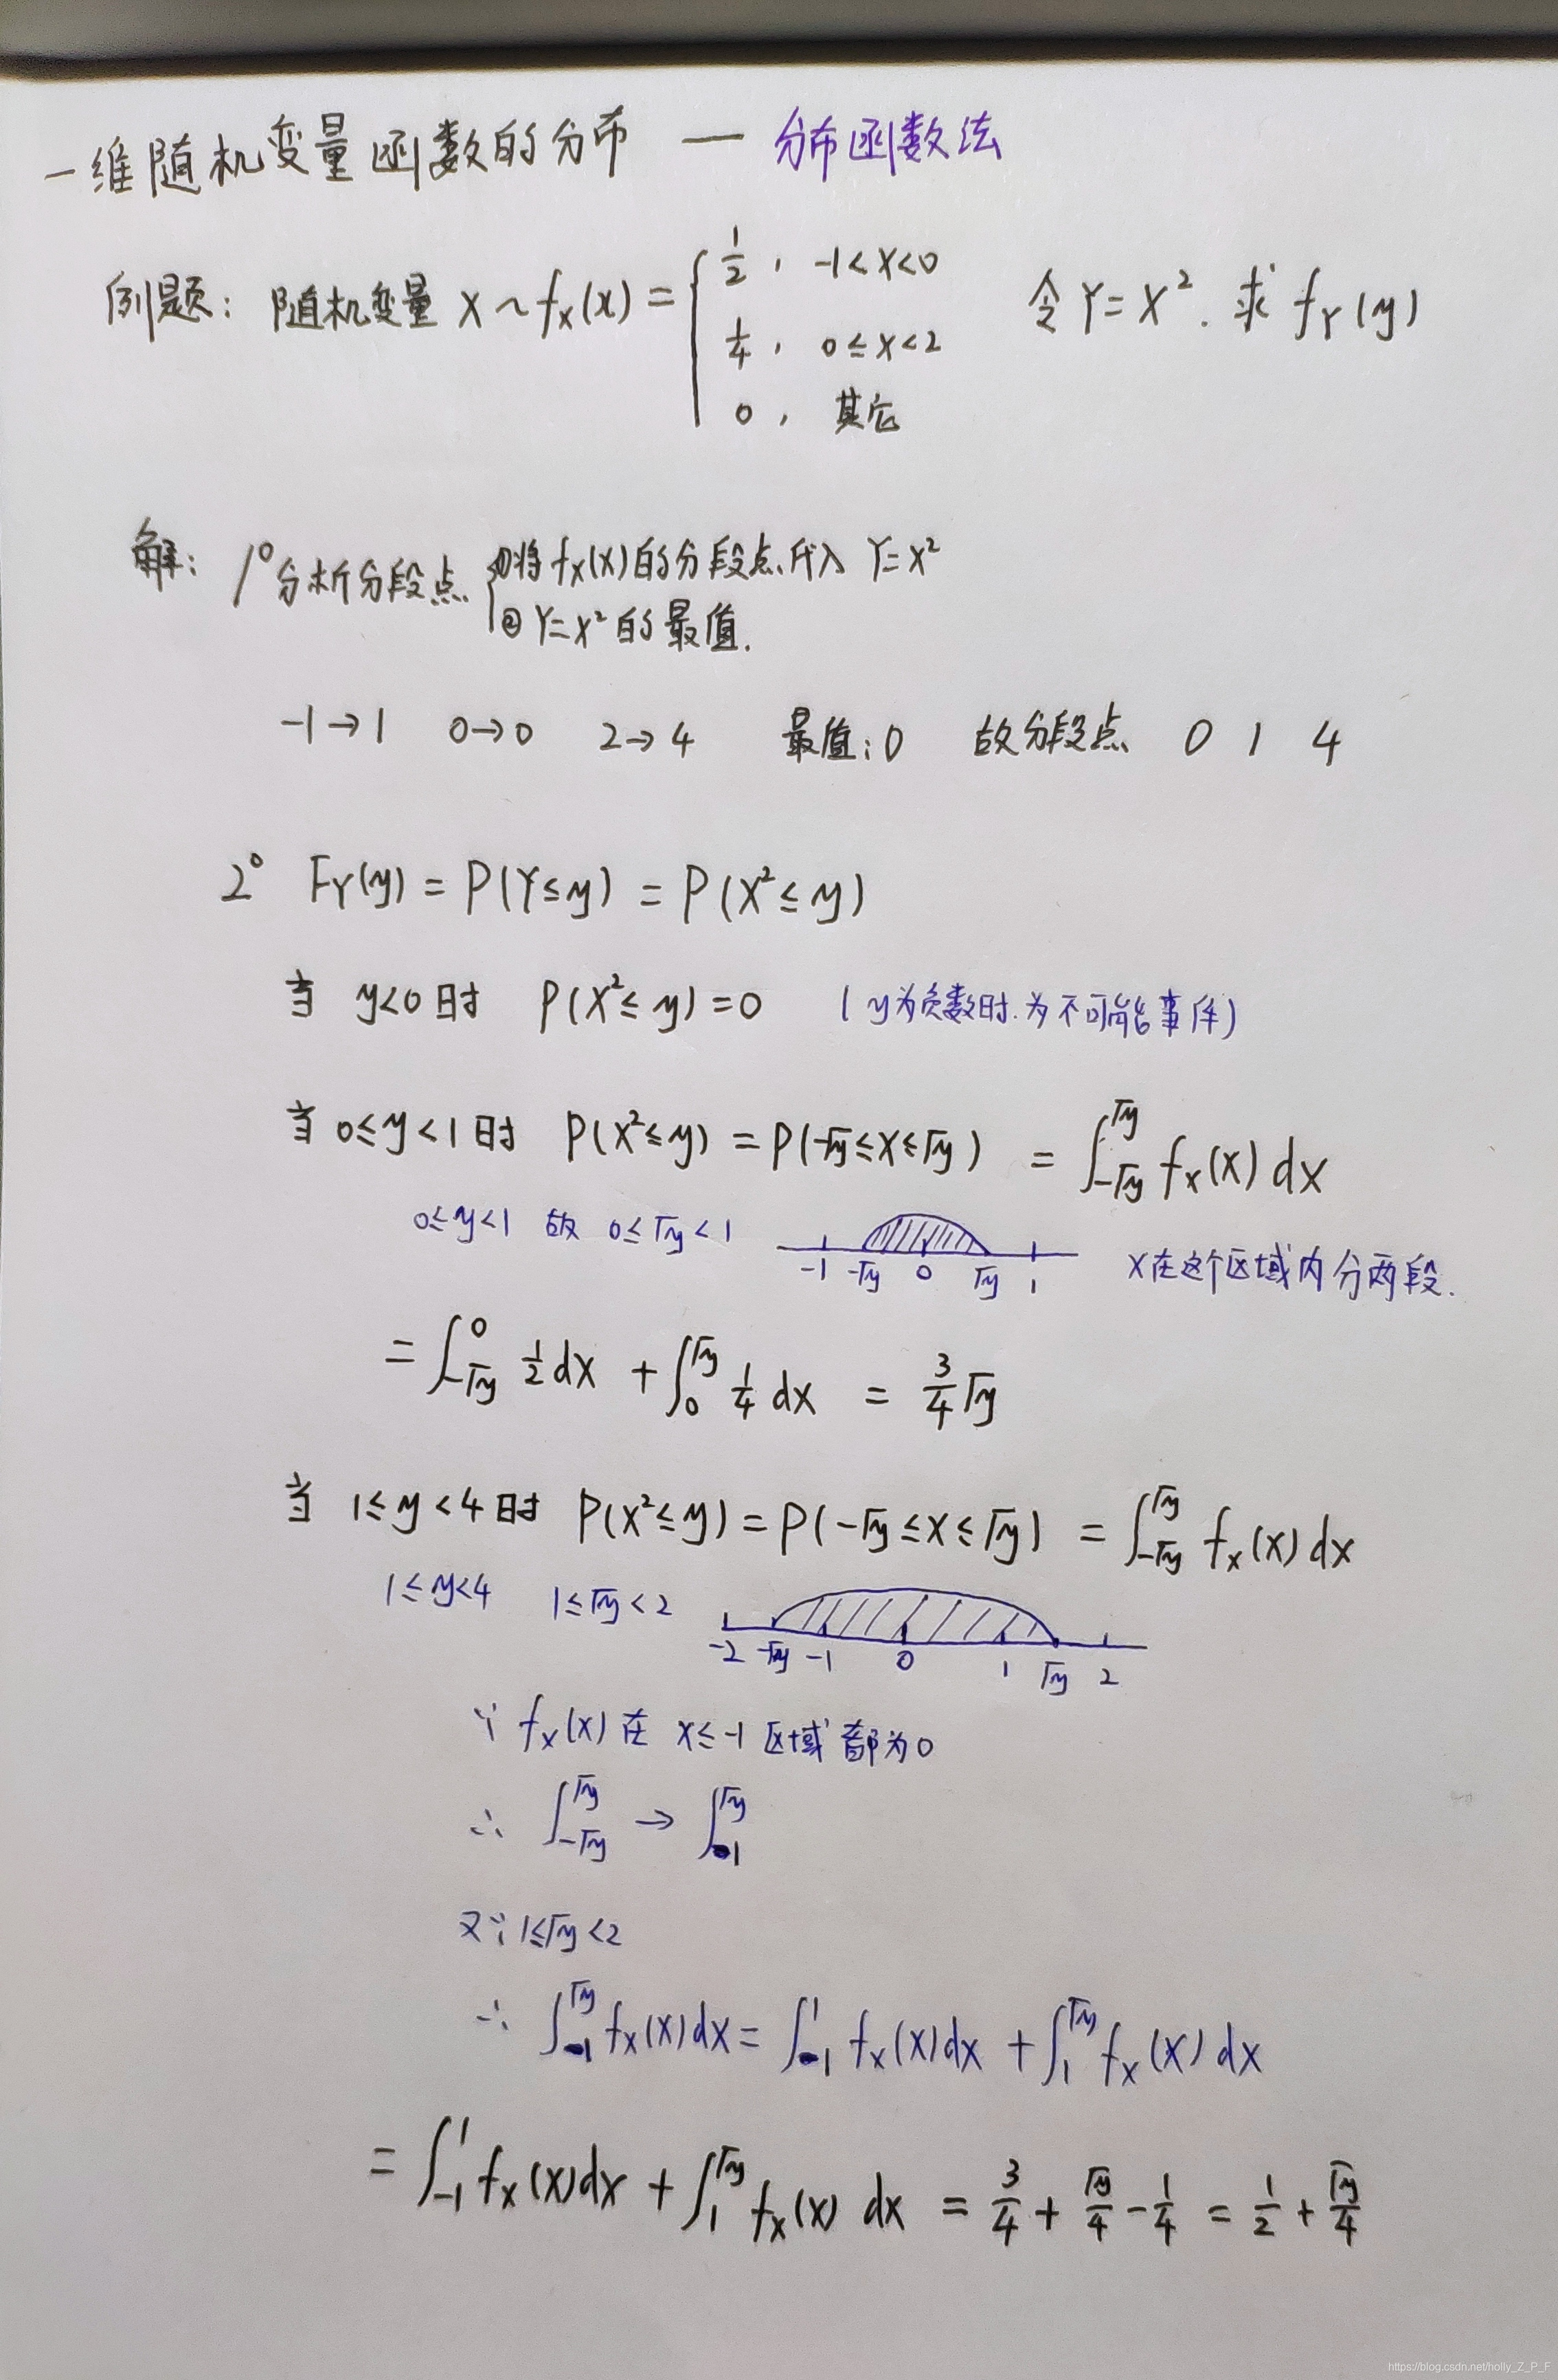 一维随机变量函数的分布 — 分布函数法
例题: 随机变量 X ~ fX(x) = { 1/2, -1<x<0 令 Y=X². 求 fY(y)
1/4, 0≤x<2
0, 其它
解: 1° 分析分段点 { ①将 fX(x) 的分段点代入 Y=X²
② Y=X² 的最值.
-1→1 0→0 2→4 最值:0 故分段点 0 1 4
2° FY(y) = P(Y≤y) = P(X²≤y)
当 y<0 时 P(X²≤y)=0 (y为负数时.为不可能事件)
当 0≤y<1 时 P(X²≤y) = P(-√y≤X≤√y) = ∫_{-√y}^{√y} fX(x) dx
0≤y<1 故 0≤√y<1 -1 -√y 0 √y 1 X在这个区域内分两段.
= ∫_{-√y}^{0} 1/2 dx + ∫_{0}^{√y} 1/4 dx = 3/4 √y
当 1≤y<4 时 P(X²≤y) = P(-√y≤X≤√y) = ∫_{-√y}^{√y} fX(x) dx
1≤y<4 1≤√y<2 -2 -√y -1 0 1 √y 2
∵ fX(x) 在 x≤-1 区域都为0
∴ ∫_{-√y}^{√y} → ∫_{-1}^{√y}
又∵ 1≤√y<2
∴ ∫_{-1}^{√y} fX(x)dx = ∫_{-1}^{1} fX(x)dx + ∫_{1}^{√y} fX(x) dx
= ∫_{-1}^{1} fX(x)dx + ∫_{1}^{√y} fX(x) dx = 3/4 + √y/4 - 1/4 = 1/2 + √y/4
https://blog.csdn.net/holly_Z_P_F